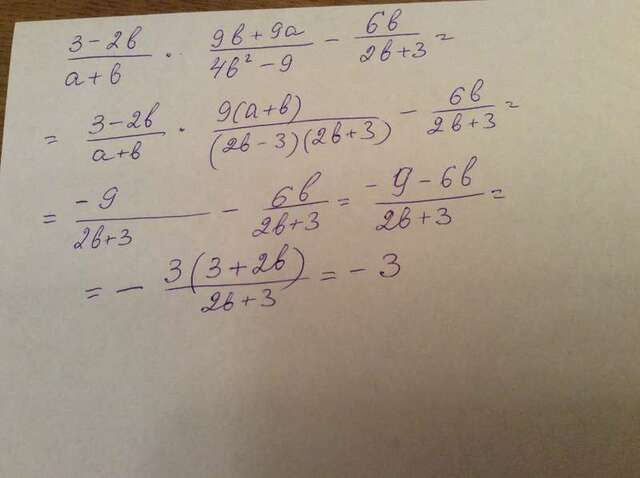 (3-2b)/(a+b) · (9b+9a)/(4b²-9) - 6b/(2b+3) =
= (3-2b)/(a+b) · 9(a+b)/((2b-3)(2b+3)) - 6b/(2b+3) =
= -9/(2b+3) - 6b/(2b+3) = (-9-6b)/(2b+3) =
= - 3(3+2b)/(2b+3) = -3